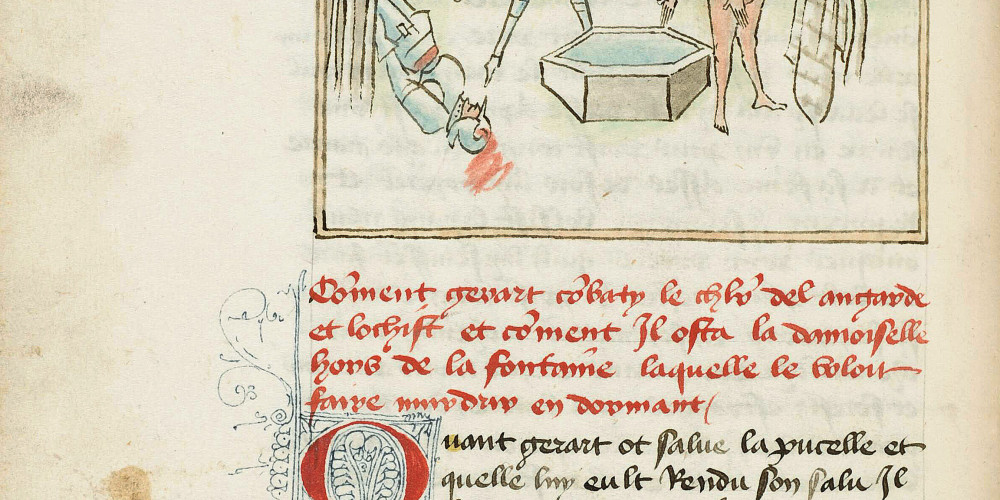 Co̅ment gerart co̅baty le chl̅r del angarde
et lochist et co̅ment Il osta la damoiselle
hors de la fontaine laquelle le voloit
faire murdrir en dormant
Quant gerart ot salue la pucelle et
quelle luy eult Rendu son salu Il